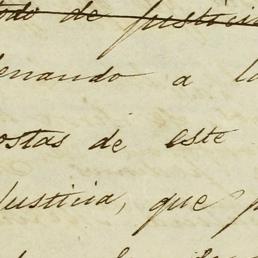 todo de justicia
enando a lo
ostas de este
Justicia, que p